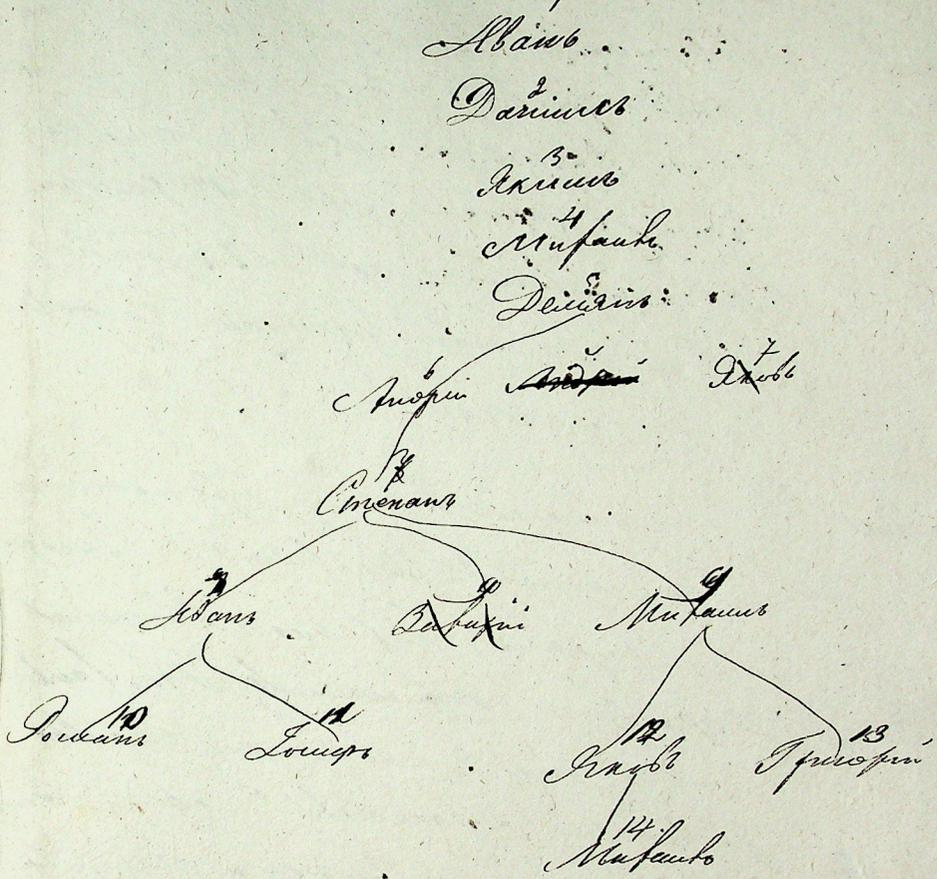 Иванъ
2
Данилъ
3
Якимъ
4
Михаилъ
5
Демянъ
6 7
Андрій Андрій Яковъ
Степанъ
9
Иванъ Захарій Михаилъ
10 11
Романъ Іосифъ
12 13
Яковъ Григорій
14
Михаилъ